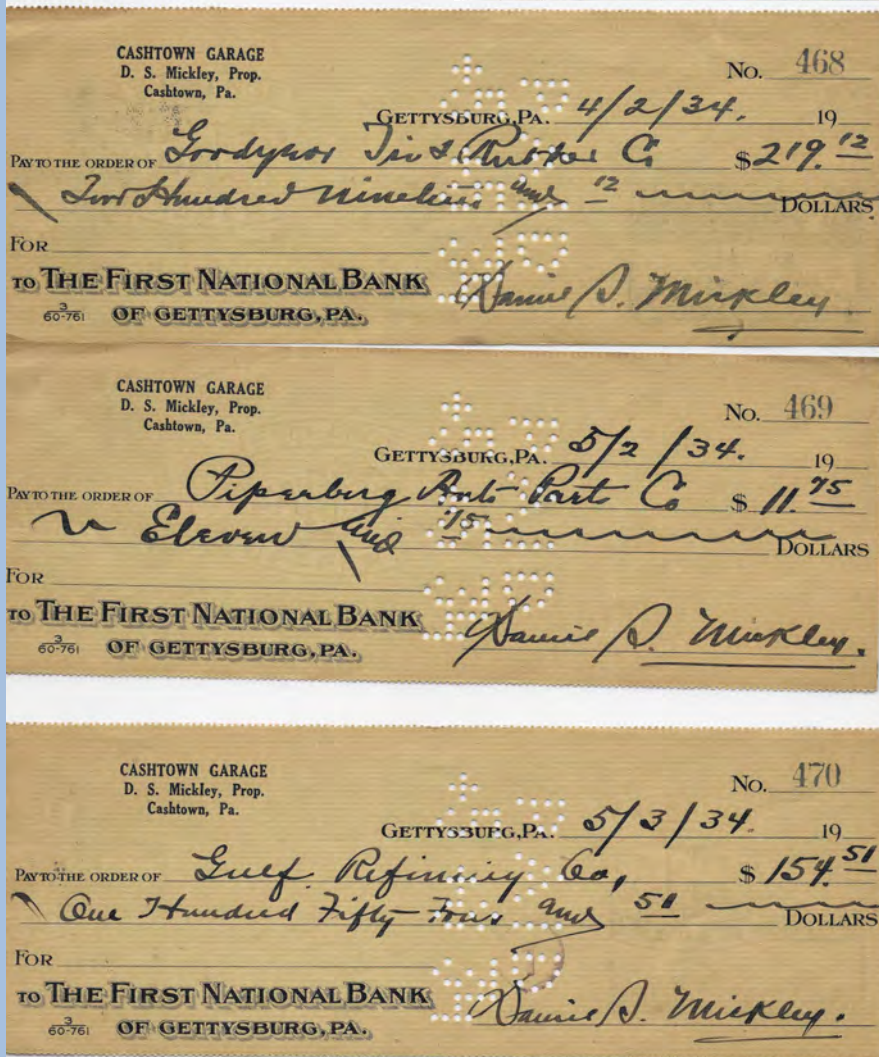 CASHTOWN GARAGE
D. S. Mickley, Prop.
Cashtown, Pa.
No. 468
GETTYSBURG, PA. 4/2/34. 19
PAY TO THE ORDER OF Goodyear Tire & Rubber Co $219.12
Two Hundred Nineteen and 12 DOLLARS
FOR
TO THE FIRST NATIONAL BANK
3
60-761 OF GETTYSBURG, PA.
S. Mickley
CASHTOWN GARAGE
D. S. Mickley, Prop.
Cashtown, Pa.
No. 469
GETTYSBURG, PA. 5/2/34. 19
PAY TO THE ORDER OF Auto Parts Co $11.75
Eleven and 75 DOLLARS
FOR
TO THE FIRST NATIONAL BANK
3
60-761 OF GETTYSBURG, PA.
S. Mickley.
CASHTOWN GARAGE
D. S. Mickley, Prop.
Cashtown, Pa.
No. 470
GETTYSBURG, PA. 5/3/34. 19
PAY TO THE ORDER OF Gulf Refining Co, $154.51
One Hundred Fifty-Four and 51 DOLLARS
FOR
TO THE FIRST NATIONAL BANK
3
60-761 OF GETTYSBURG, PA.
S. Mickley.